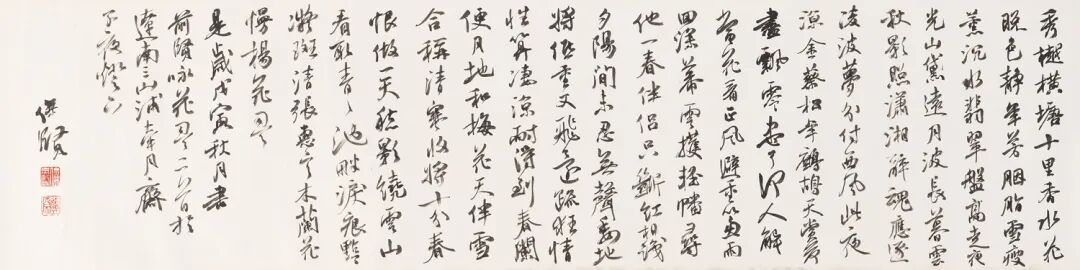 秀樾橫塘十里香水花
晚色靜年芳胭脂雪瘦
熏沉水翡翠盤高走夜
光山黛遠月波長暮雲
秋影照瀟湘醉魂應逐
凌波夢分付西風此夜
涼金蔡松年鷓鴣天賞荷
盡飄零盡了何人解
當花看正風避重簾雨
回深幕雲護輕幡尋
他一春伴侶只斷紅相識
夕陽間未忍無聲委地
將低重又飛還疏狂情
性算淒涼耐得到春闌
便月地和梅花天伴雪
合稱清寒收將十分春
恨做一天愁影繞雲山
看取青青池畔淚痕點點
凝斑清張惠言木蘭花
慢楊花
是歲戊寅秋月書
前賢詠花二首於
南三山浦月齋
不夜燈下